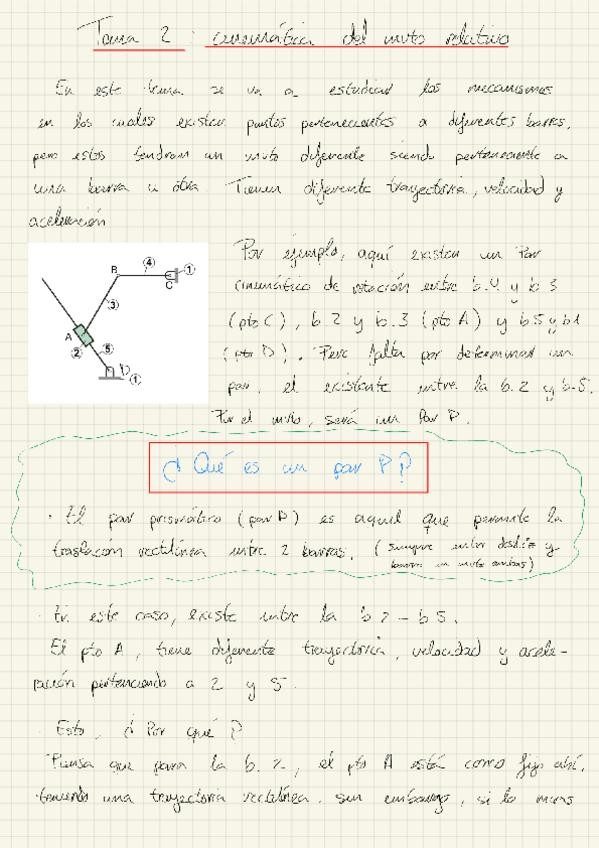 Tema 2 : cinemática del mvto relativo
En este tema se va a estudiar los mecanismos
en los cuales existen puntos pertenecientes a diferentes barras,
pero estos tendran un mvto diferente siendo perteneciente a
una barra u otra Tienen diferente trayectoria, velocidad y
aceleración
Por ejemplo, aquí existen un Par
cinemático de rotación entre b.4 y b 3
(pto C), b 2 y b.3 (pto A) y b5 y b1
(pto D). Pero falta por determinar un
par, el existente entre la b.2 y b.5.
Por el mvto, será un Par P.
B
4
1
C
3
A
2
5
D
1
¿Qué es un par P?
· El par prismático (par P) es aquel que permite la
traslación rectilínea entre 2 barras. (siempre entre y
barra en mvto ambas)
· En este caso, existe entre la b 2 - b 5.
El pto A, tiene diferente trayectoria, velocidad y acele-
ración perteneciendo a 2 y 5.
· Esto, ¿Por qué?
Piensa que para la b. 2, el pto A está como fijo ahí,
teniendo una trayectoria rectilínea. sin embargo, si lo